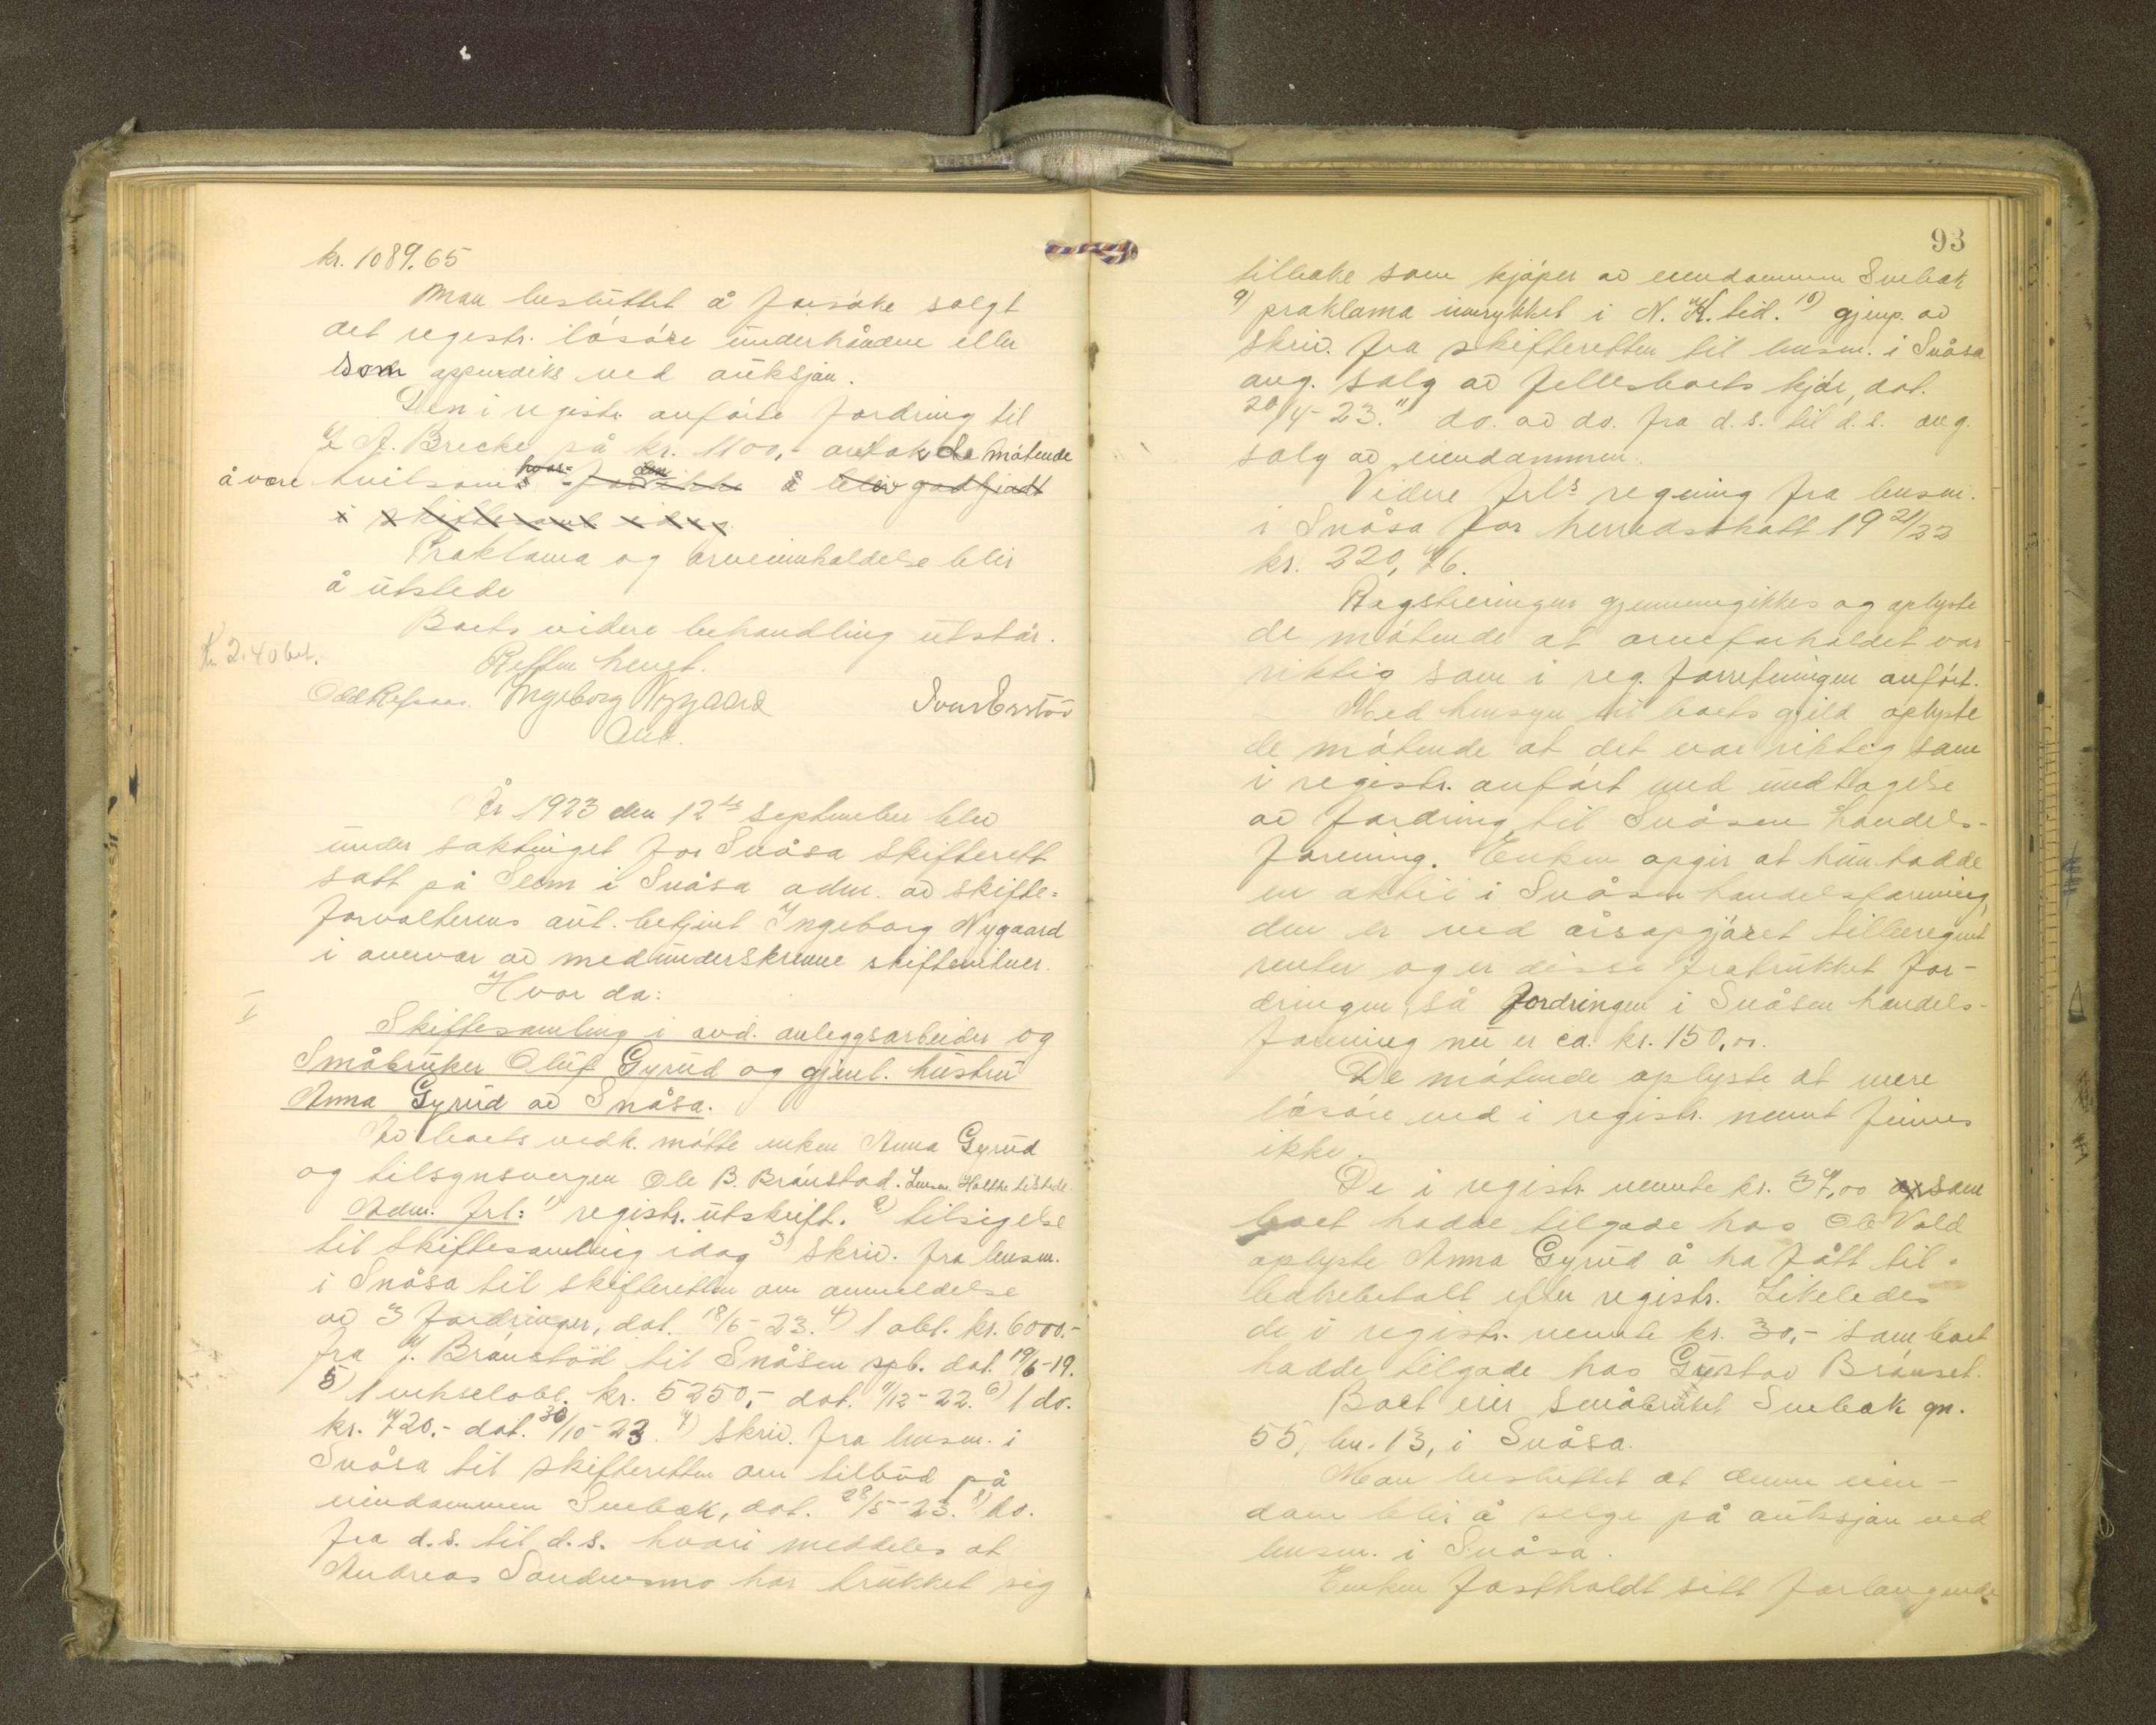 kr. 1089.65
Man besluttet å forsøke solgt
det registr. løsøre underhånden eller
som appendiks ved auksjon.
Den i registr. anførte fordring til
A. Brecke på kr. 1100,- antok de møtende
å være tvilsom
Proklama og arveinnkaldelse blir
å utstede
Boets videre behandling utstår.
Kr 2.40 bet.
Retten hevet.
Ingeborg Nygaard
Aut.
År 1923 den 12te september blev
under saktinget for Snåsa skifterett
satt på Seem i Snåsa adm. av skifte-
forvalterens aut. betjent Ingeborg Nygaard
i overvær av medunderskrevne skiftevitner.
Hvor da:
I
Skiftesamling i avd. anleggsarbeider og
Småbruker Oluf Gyrud og gjenl. hustru
Anna Gyrud av Snåsa.
På boets vedk. møtte enken Anna Gyrud
og tilsynsvergen Ole B. Brønstad. Lensm. Holthe tilstede.
Adm. frl: 1) registr. utskrift. 2) tilsigelse
til skiftesamling idag 3) skriv. fra lensm.
i Snåsa til skifteretten om anmeldelse
av 3 fordringer, dat. 18/6-23. 4) 1 obl. kr. 6000.-
fra J. Brønstad til Snåsen spb. dat. 19/6-19.
5) 1 vekselobl. kr. 5250,- dat. 11/12-22. 6) 1 do.
kr. 720.- dat. 30/10-23. 7) skriv. fra lensm. i
Snåsa til skifteretten om tilbud på
eiendommen Snebak, dat. 28/5-23. 8) do.
fra d.s. til d.s. hvori meddeles at
Andreas Sandnesmo har trukket sig
93
tilbake som kjøper av eiendommen Snebak
9) proklama innrykket i N. K. tid. 10) gjenp. av
skriv. fra skifteretten til lensm. i Snåsa
ang. salg av fellesboets kjør, dat.
20/4-23. 11) do. av do. fra d.s. til d.s. ang.
salg av eiendommen.
Videre frl's regning fra lensm.
i Snåsa for herredsskatt 1921/22
kr. 220,76.
Registreringen gjennemgikkes og oplyste
de møtende at arveforholdet var
riktig som i reg. forretningen anført.
Med hensyn til boets gjeld oplyste
de møtende at det var riktig som
i registr. anført med undtagelse
av fordring til Snåsen handels-
forening. Enken opgir at hun hadde
en aktie i Snåsen handelsforening,
den er ved årsopgjøret tilberegnet
renter og er disse fratrukket for-
dringen så fordringen i Snåsen handels-
forening nu er ca. kr. 150,00.
De møtende oplyste at mere
løsøre end i registr. nevnt finnes
ikke.
De i registr. nevnte kr. 37,00 som
boet hadde tilgode hos Ole Vold
oplyste Anna Gyrud å ha fått til-
bakebetalt efter registr. Likeledes
de i registr. nevnte kr. 30,- som boet
hadde tilgode hos Gustav Brønset.
Boet eier småbruket Snebak gn.
55, bn. 13, i Snåsa.
Man besluttet at denne eien-
dom blir å selge på auksjon ved
lensm. i Snåsa.
Enken fastholdt sitt forlangende